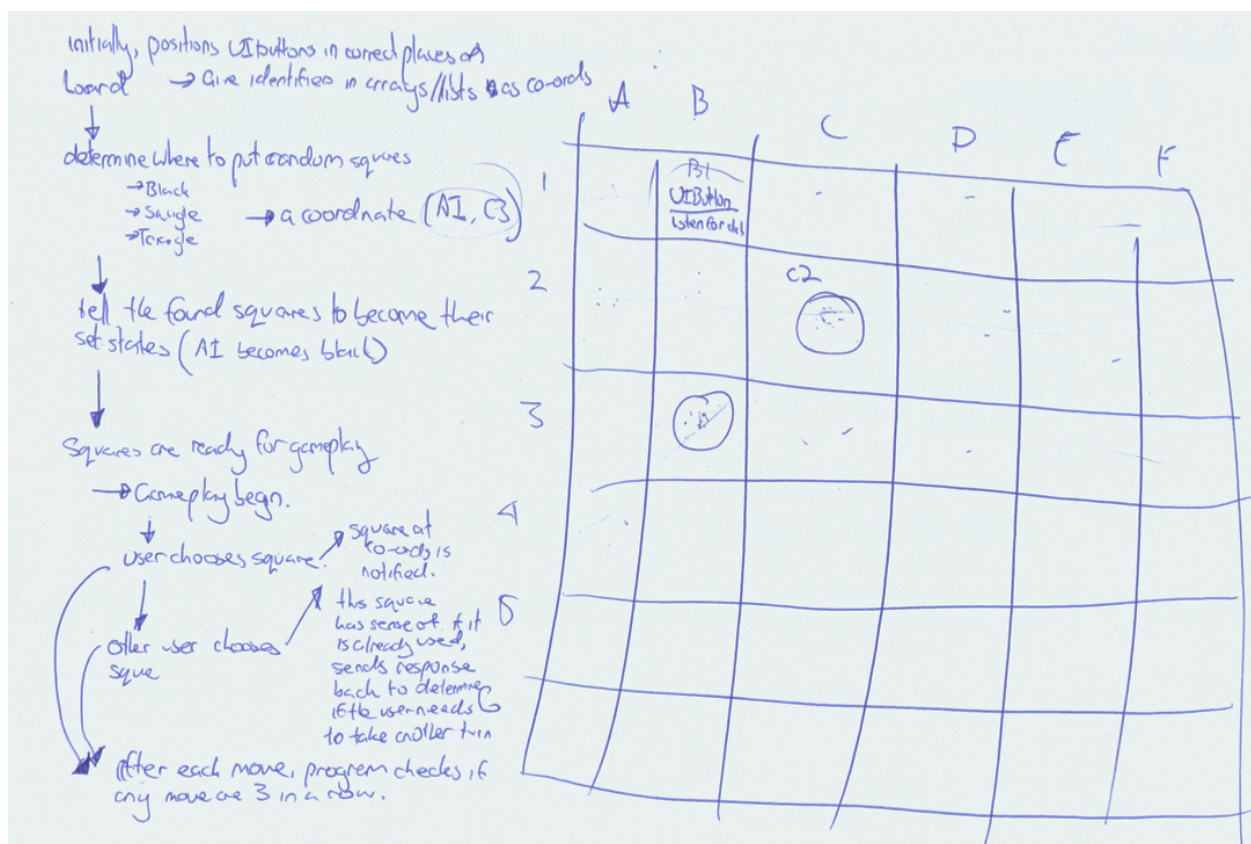 initially, positions UIbuttons in correct places on
board → Give identifiers in arrays/lists as co-ords
determine where to put random squares
→ Black
→
→
→ a coordinate (A1, C3)
tell the found squares to become their
set states (A1 becomes black)
Squares are ready for gameplay
→ Gameplay begin.
user chooses square.
square at
co-ords is
notified.
other user chooses
squre
this square
has sense of if it
is already used,
sends response
back to determine
if the user needs
to take another turn
After each move, program checks if
any move are 3 in a row.
A B C D E F
1
B1
UIButton
listen for
2
C2
3
4
5